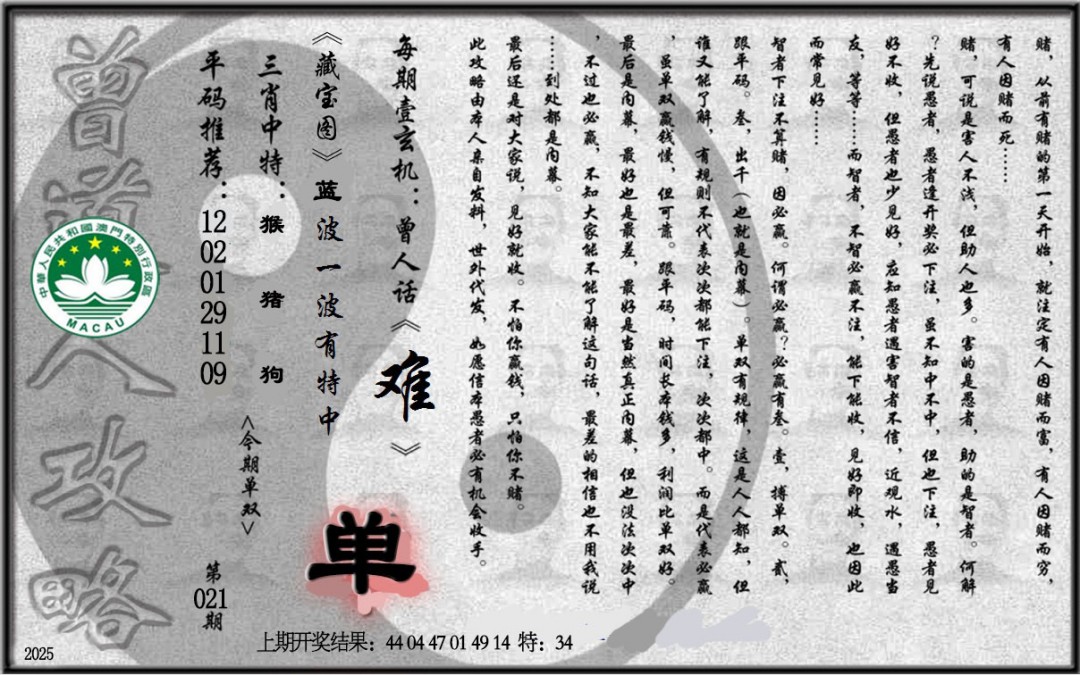 赌，从前有赌的第一天开始，就注定有人因赌而富，有人因赌而穷，
有人因赌而死……
赌，可说是害人不浅，但助人也多。害的是愚者，助的是智者。何解
？先说愚者，愚者逢开奖必下注，虽不知中不中，但也下注，愚者见
好不收，但愚者也少见好，应知愚者遇害智者不信，近观水，遇愚当
友，等等……而智者，不智必赢不注，能下能收，见好即收，也因此
而常见好……
智者下注不算赌，因必赢。何谓必赢？必赢有叁。壹，搏单双。贰，
跟平码。叁，出千（也就是内幕）。单双有规律，这是人人都知，但
谁又能了解，有规则不代表次次都能下注，次次都中。而是代表必赢
，虽单双赢钱慢，但可靠。跟平码，时间长本钱多，利润比单双好。
最后是内幕，最好也是最差，最好是当然真正内幕，但也没法次次中
，不过也必赢，不知大家能不能了解这句话，最差的相信也不用我说
……到处都是内幕。
最后还是对大家说，见好就收。不怕你赢钱，只怕你不赌。
此攻略由本人亲自发料，世外代发，如愿信本愚者必有机会收手。
每期壹玄机：曾人话《难》
《藏宝图》蓝波一波有特中
单
三肖中特：猴 猪 狗
<今期单双>
平码推荐：12 02 01 29 11 09
第021期
曾道人攻略
中華人民共和國澳門特別行政區
MACAU
上期开奖结果：44 04 47 01 49 14 特：34
2025